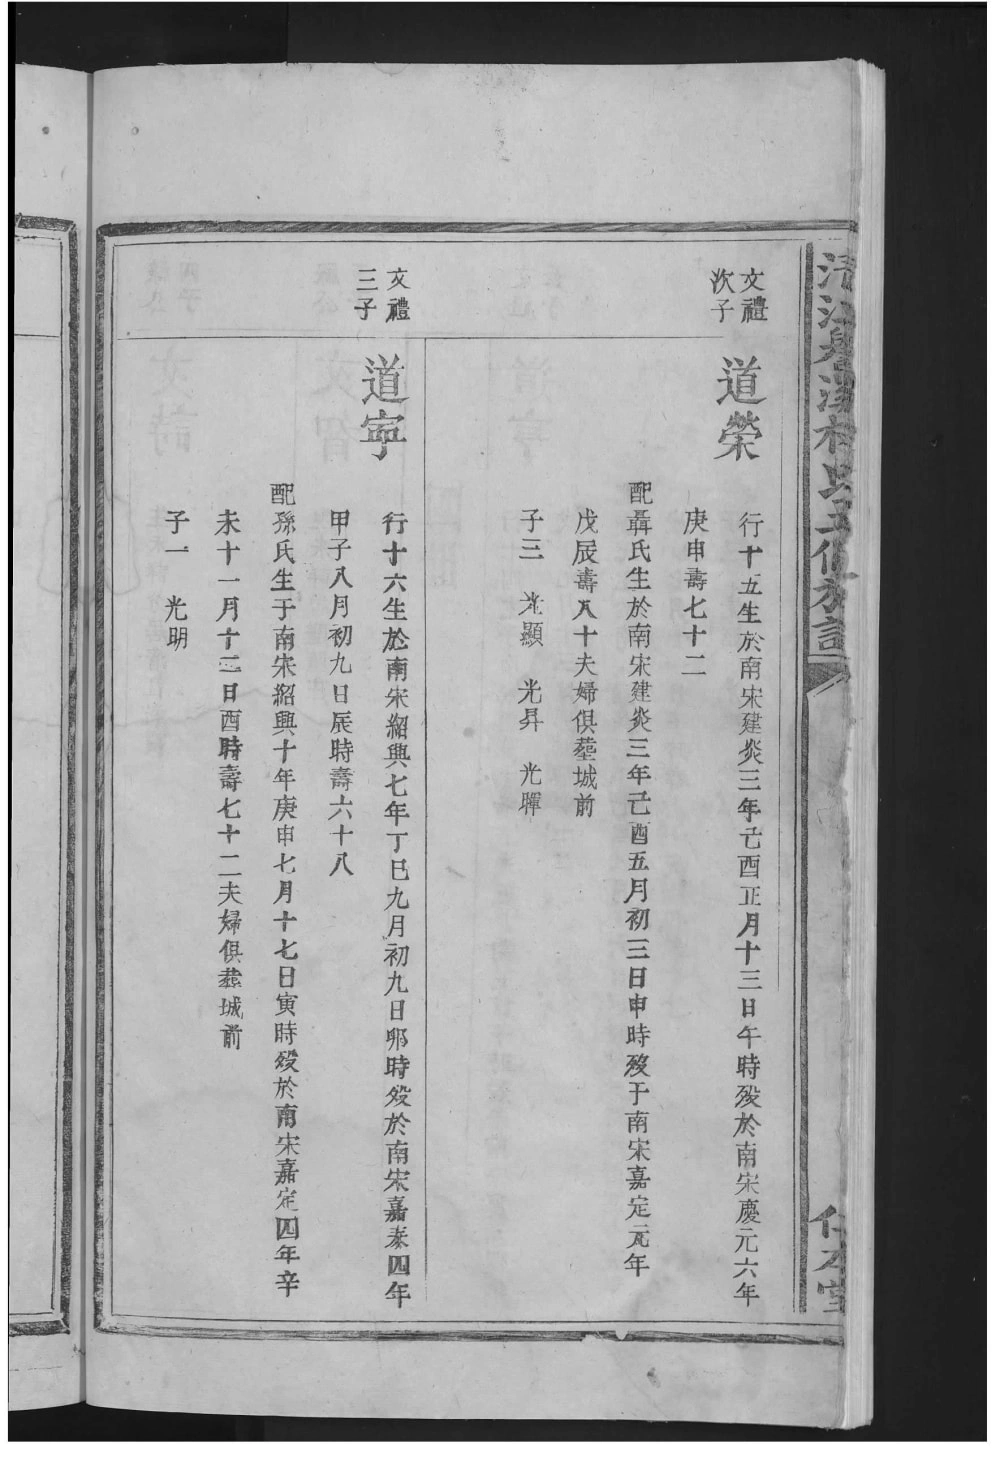 文禮
次子
道榮
行十五生於南宋建炎三年己酉正月十三日午時歿於南宋慶元六年
庚申壽七十二
配聶氏生於南宋建炎三年己酉五月初三日申時歿于南宋嘉定元年
戊辰壽八十夫婦俱塟城前
子三　光顯　光昇　光暉
文禮
三子
道寧
行十六生於南宋紹興七年丁巳九月初九日卯時歿於南宋嘉泰四年
甲子八月初九日辰時壽六十八
配孫氏生于南宋紹興十年庚申七月十七日寅時歿於南宋嘉定四年辛
未十一月十三日酉時壽七十二夫婦俱塟城前
子一　光明